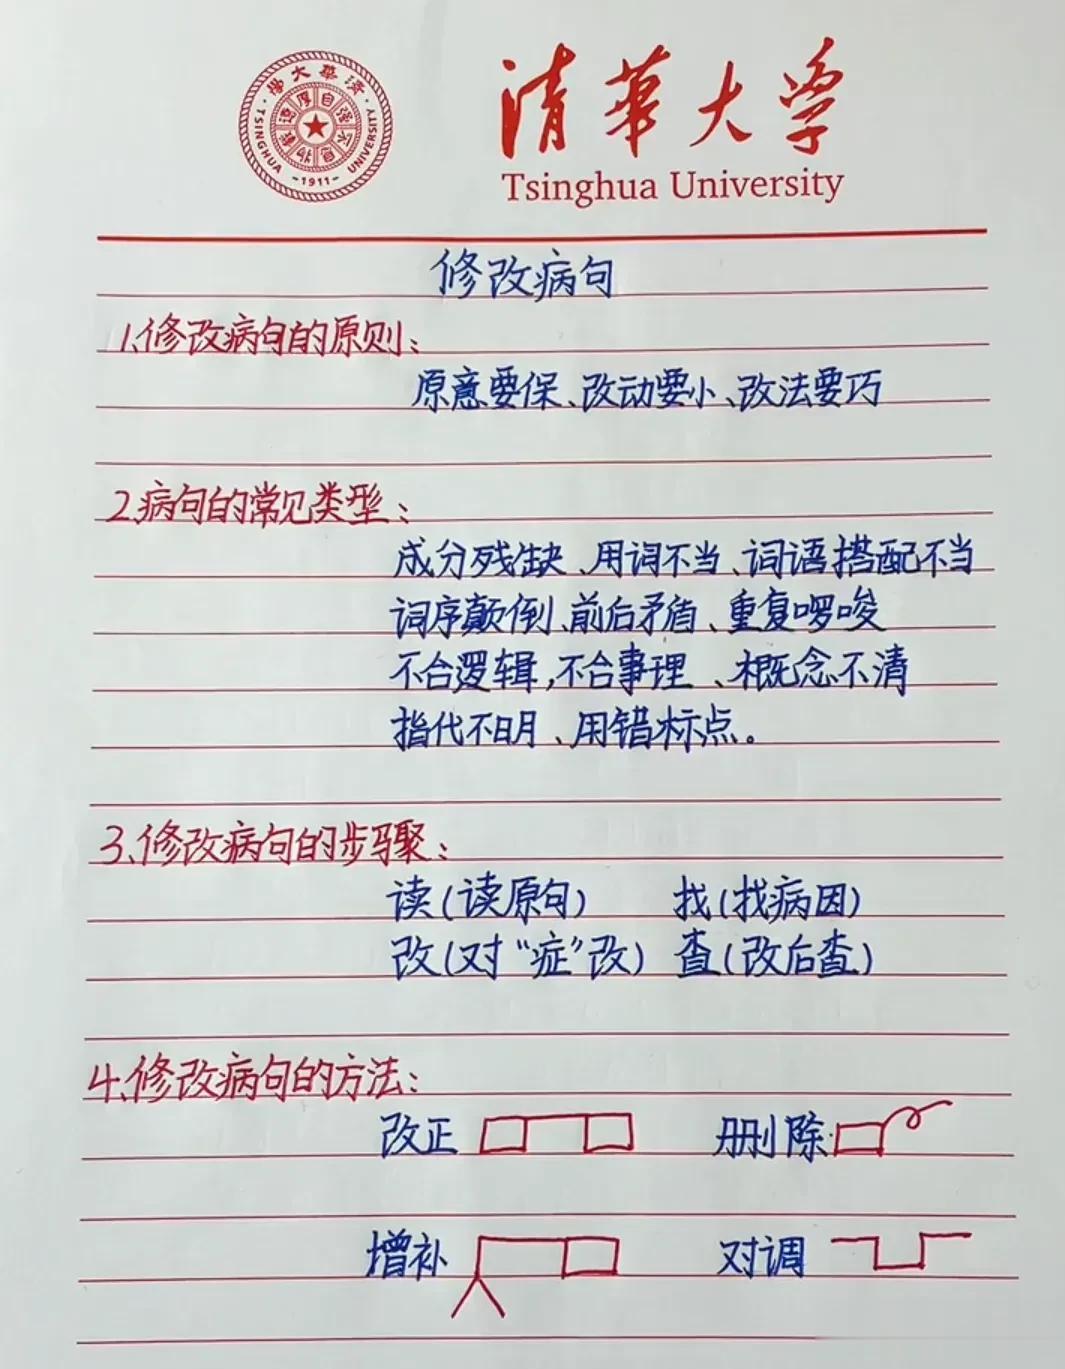 清華大学
Tsinghua University
清華大學
·TSINGHUA UNIVERSITY·
-1911-
自强不息
厚德载物
修改病句
1.修改病句的原则：
原意要保、改动要小、改法要巧
2.病句的常见类型：
成分残缺、用词不当、词语搭配不当
词序颠倒、前后矛盾、重复啰唆
不合逻辑，不合事理、概念不清
指代不明、用错标点。
3.修改病句的步骤：
读（读原句） 找（找病因）
改（对“症”改） 查（改后查）
4.修改病句的方法：
改正 删除
增补 对调